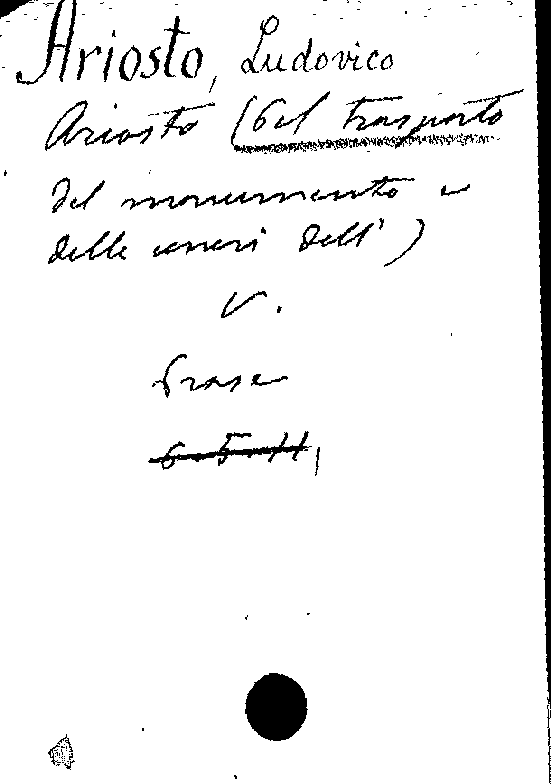 Ariosto, Ludovico
Ariosto (Del trasporto
del monumento e
delle ceneri dell')
V.
Prose
6-5-H,